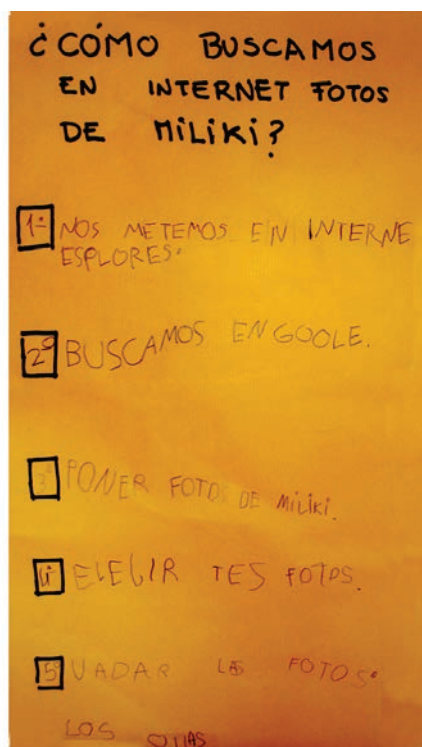 ¿CÓMO BUSCAMOS
EN INTERNET FOTOS
DE MILIKI?
1º NOS METEMOS EN INTERNE
ESPLORES.
2º BUSCAMOS EN GOOLE.
3º PONER FOTOS DE MILIKI.
4º ELEGIR TES FOTOS.
5º VADAR LAS FOTOS.
LOS